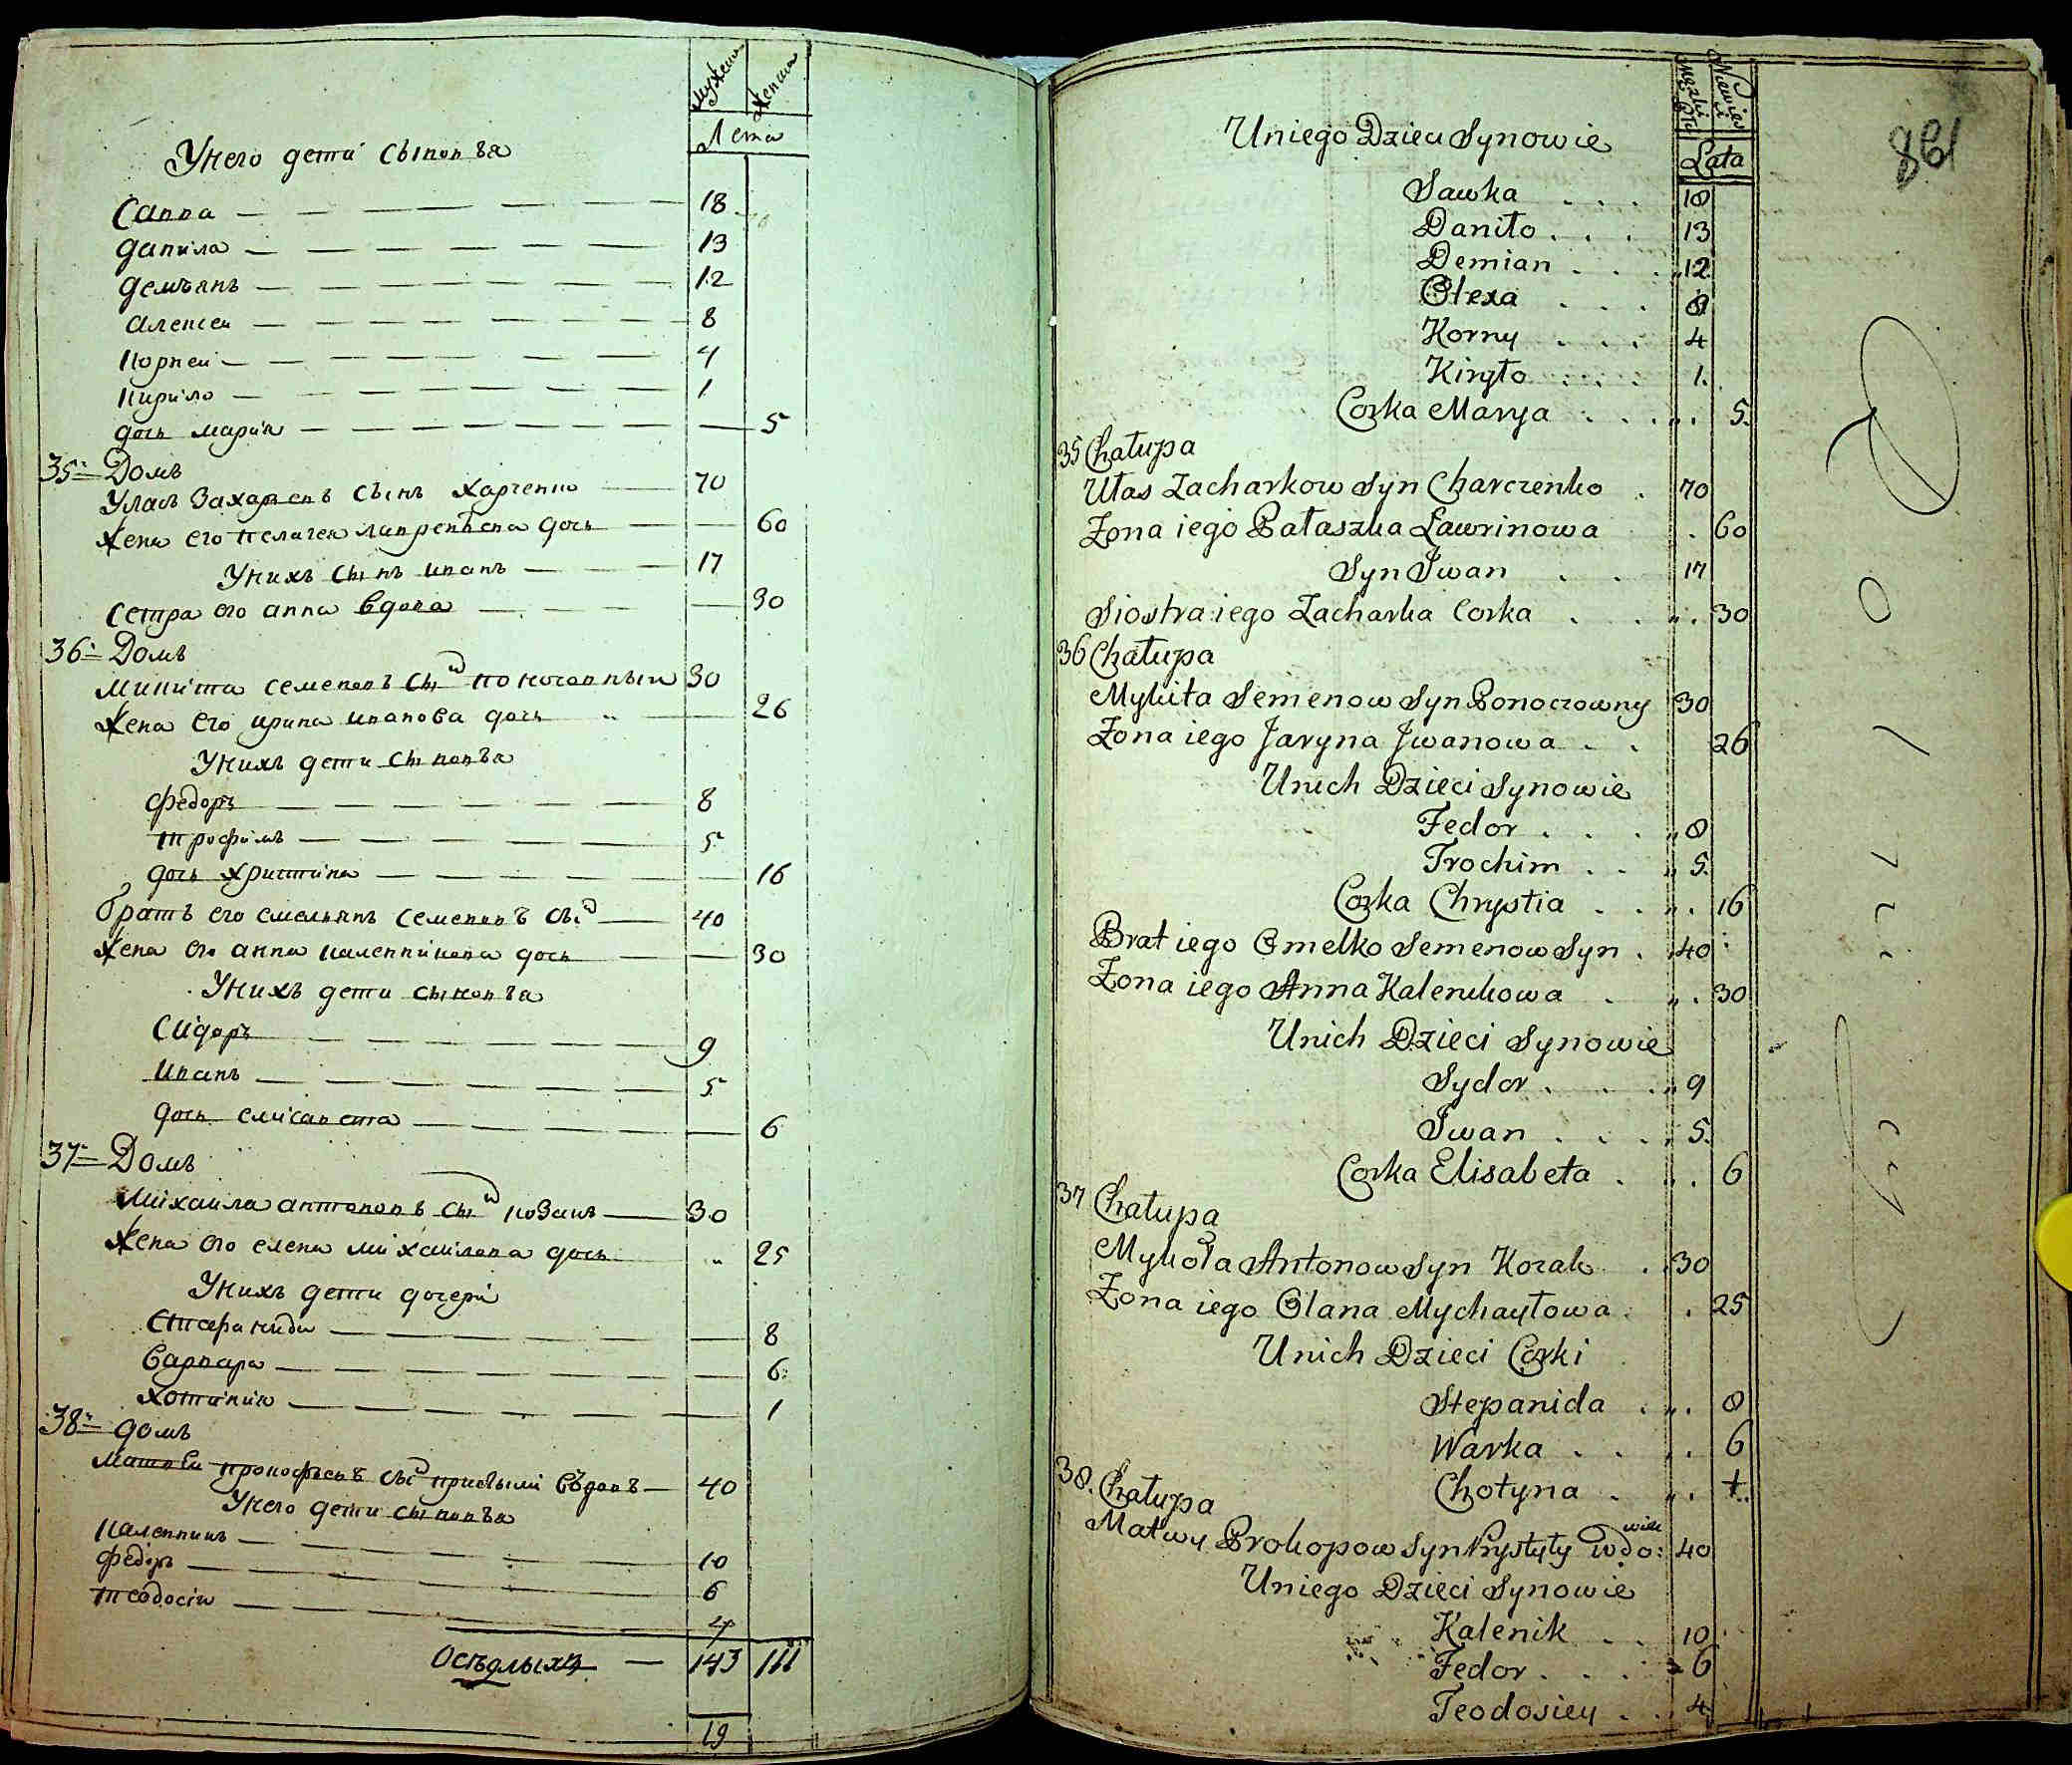 мужеска
женска
Лета
Унего дети сыновъя
Савва — 18
данила — 13
демъянъ — 12
алексеи — 8
корнеи — 4
кирило — 1
дочь мария — 5
35 Домъ
Уласъ Захаревъ сынъ харченко — 70
жена его пелагея лавренътева дочь — 60
Унихъ сынъ иванъ — 17
сестра его анна вдова — 30
36 Домъ
микита семеновъ сынъ поночовныи 30
жена его ирина иванова дочь — 26
Унихъ дети сыновъя
федоръ — 8
трофимъ — 5
дочь христина — 16
братъ его емельянъ семеновъ сынъ — 40
жена его анна каленникова дочь — 30
Унихъ дети сыновъя
сидоръ — 9
иванъ — 5
дочь елисавета — 6
37 Домъ
михаила антоновъ сынъ козакъ — 30
жена его елена михаилова дочь „ 25
Унихъ дети дочери
степанида — 8
варвара — 6
хотиния — 1
38 домъ
матвеи прокофьевъ сынъ прибылыи въдовъ — 40
Унего дети сыновъя
каленникъ — 10
федоръ — 6
теодосiи — 4
Оседлыхъ — 143 111
19
198
Męzki
Lata
Uniego Dzieci Synowie
Sawka . . . 18
Daniło . . . 13
Demian . . . 12
Olexa . . . 8
Korny . . . 4
Kiryło . . . 1.
Corka Marya . . . „ . 5.
35 Chałupa
Ułas Zacharkow Syn Charczenko . 70
Zona iego Pałaszka Ławrinowa . 60
Syn Iwan . . 17
Siostra iego Zacharka Corka . . „ . 30
36 Chałupa
Mykita Semenow Syn Ponoczowny 30
Zona iego Jaryna Jwanowa . . 26
Unich Dzieci Synowie
Fedor . . . „ 8
Trochim . . „ 5.
Corka Chrystia . . „ . 16
Brat iego Omelko Semenow Syn . 40
Zona iego Anna Kalenikowa . „ . 30
Unich Dzieci Synowie
Sydor . . . „ 9
Iwan . . . „ 5.
Corka Elisabeta . „ . 6
37 Chałupa
Mykoła Antonow Syn Kozak . 30
Zona iego Olana Mychayłowa . . 25
Unich Dzieci Corki
Stepanida . „ . 8
Warka . . „ . 6
Chotyna . „ . 1.
38. Chałupa
Matwy Prokopow Syn Prystyły wdo: wiec 40
Uniego Dzieci Synowie
Kalenik . . 10
Fedor . . . 6
Teodosiey . . 4